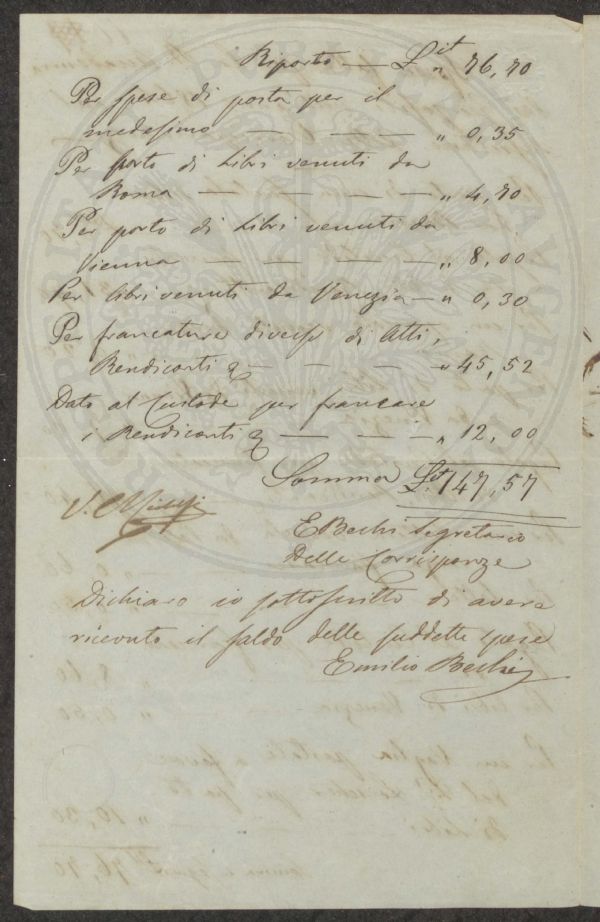 Riporto — £it " 76,70
Per spese di posta per il
medesimo — — — " 0,35
Per porto di Libri venuti da
Roma — — — — " 4,70
Per porto di Libri venuti da
Vienna — — — — " 8,00
Per libri venuti da Venezia — " 0,30
Per francature diverse di Atti,
Rendiconti & — — — " 45,52
Dato al Custode per francare
i Rendiconti & — — — " 12,00
Somma £it 147,57
E Bechi Segretario
Delle Corrispenze
Dichiaro io sottoscritto di avere
ricevuto il saldo delle suddette spese
Emilio Bechi